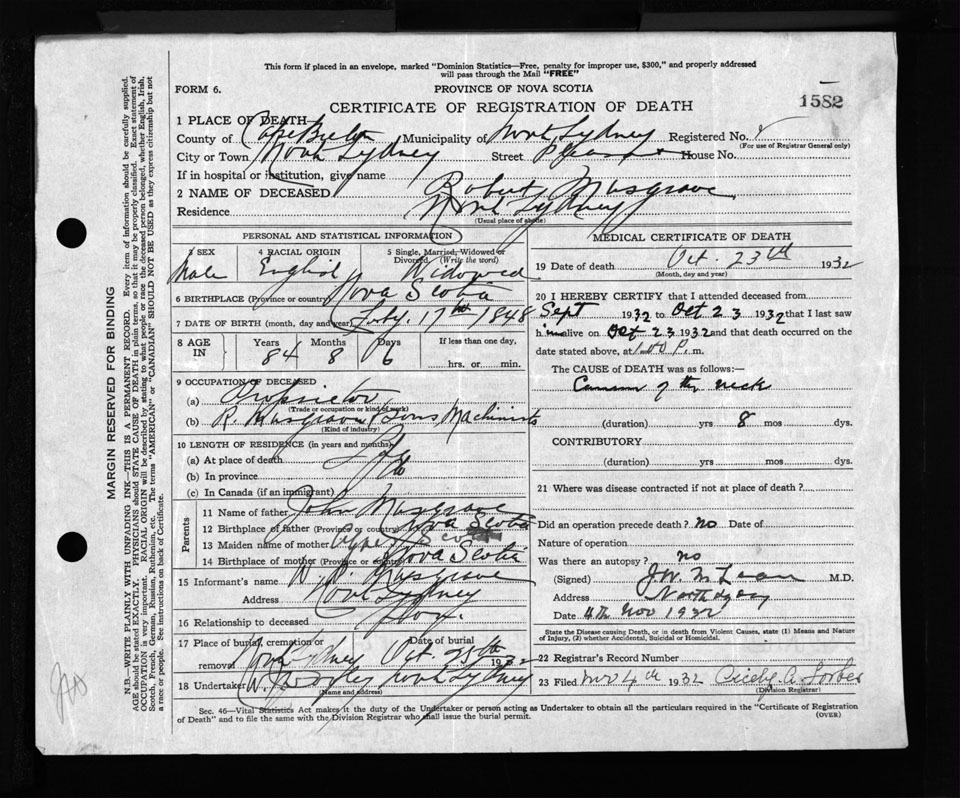 This form if placed in an envelope, marked "Dominion Statistics—Free, penalty for improper use, $300," and properly addressed
will pass through the Mail "FREE"
FORM 6.
PROVINCE OF NOVA SCOTIA
1582
CERTIFICATE OF REGISTRATION OF DEATH
1 PLACE OF DEATH
County of Cape Breton Municipality of North Sydney Registered No.
(For use of Registrar General only)
City or Town North Sydney Street Pleasant House No.
If in hospital or institution, give name
2 NAME OF DECEASED Robert Musgrave
Residence North Sydney
(Usual place of abode)
PERSONAL AND STATISTICAL INFORMATION
3 SEX 4 RACIAL ORIGIN 5 Single, Married, Widowed or Divorced (Write the word)
Male English Widowed
6 BIRTHPLACE (Province or country) Nova Scotia
7 DATE OF BIRTH (month, day and year) Feby. 17th 1848
8 AGE IN Years Months Days If less than one day,
84 8 6 hrs. or min.
9 OCCUPATION OF DECEASED
(a) Proprietor
(Trade or occupation or kind of work)
(b) R. Musgrave & Sons Machinists
(Kind of industry)
10 LENGTH OF RESIDENCE (in years and months)
(a) At place of death Life
(b) In province
(c) In Canada (if an immigrant)
Parents
11 Name of father John Musgrave
12 Birthplace of father (Province or country) Nova Scotia
13 Maiden name of mother
14 Birthplace of mother (Province or country) Nova Scotia
15 Informant's name Musgrave
Address North Sydney
16 Relationship to deceased Son
17 Place of burial, cremation or removal Date of burial
North Sydney Oct. 25th 1932
18 Undertaker North Sydney
(Name and address)
MEDICAL CERTIFICATE OF DEATH
19 Date of death Oct. 23rd 1932
(Month, day and year)
20 I HEREBY CERTIFY that I attended deceased from
Sept 1932 to Oct 23 1932 that I last saw
him alive on Oct 23 1932 and that death occurred on the
date stated above, at 1.00 P. m.
The CAUSE of DEATH was as follows:—
of the neck
(duration) yrs 8 mos dys.
CONTRIBUTORY
(duration) yrs. mos. dys.
21 Where was disease contracted if not at place of death?
Did an operation precede death? no Date of
Nature of operation
Was there an autopsy? no
(Signed) J.W. McLean M.D.
Address North Sydney
Date 4th Nov 1932
State the Disease causing Death, or in death from Violent Causes, state (1) Means and Nature
of Injury, (2) whether Accidental, Suicidal or Homicidal.
22 Registrar's Record Number
23 Filed Nov 4th 1932 A. Forbes
(Division Registrar)
Sec. 46—Vital Statistics Act makes it the duty of the Undertaker or person acting as Undertaker to obtain all the particulars required in the "Certificate of Registration
of Death" and to file the same with the Division Registrar who shall issue the burial permit.
(OVER)
MARGIN RESERVED FOR BINDING
N.B.—WRITE PLAINLY WITH UNFADING INK—THIS IS A PERMANENT RECORD. Every item of information should be carefully supplied.
AGE should be stated EXACTLY. PHYSICIANS should STATE CAUSE OF DEATH in plain terms, so that it may be properly classified. Exact statement of
OCCUPATION is very important. RACIAL ORIGIN will be described by stating to what people or race the deceased person belonged, whether English, Irish,
Scotch, French, German, Russian, Ruthenian, etc. The terms "AMERICAN" or "CANADIAN" SHOULD NOT BE USED as they express citizenship but not
a race or people. See instructions on back of Certificate.